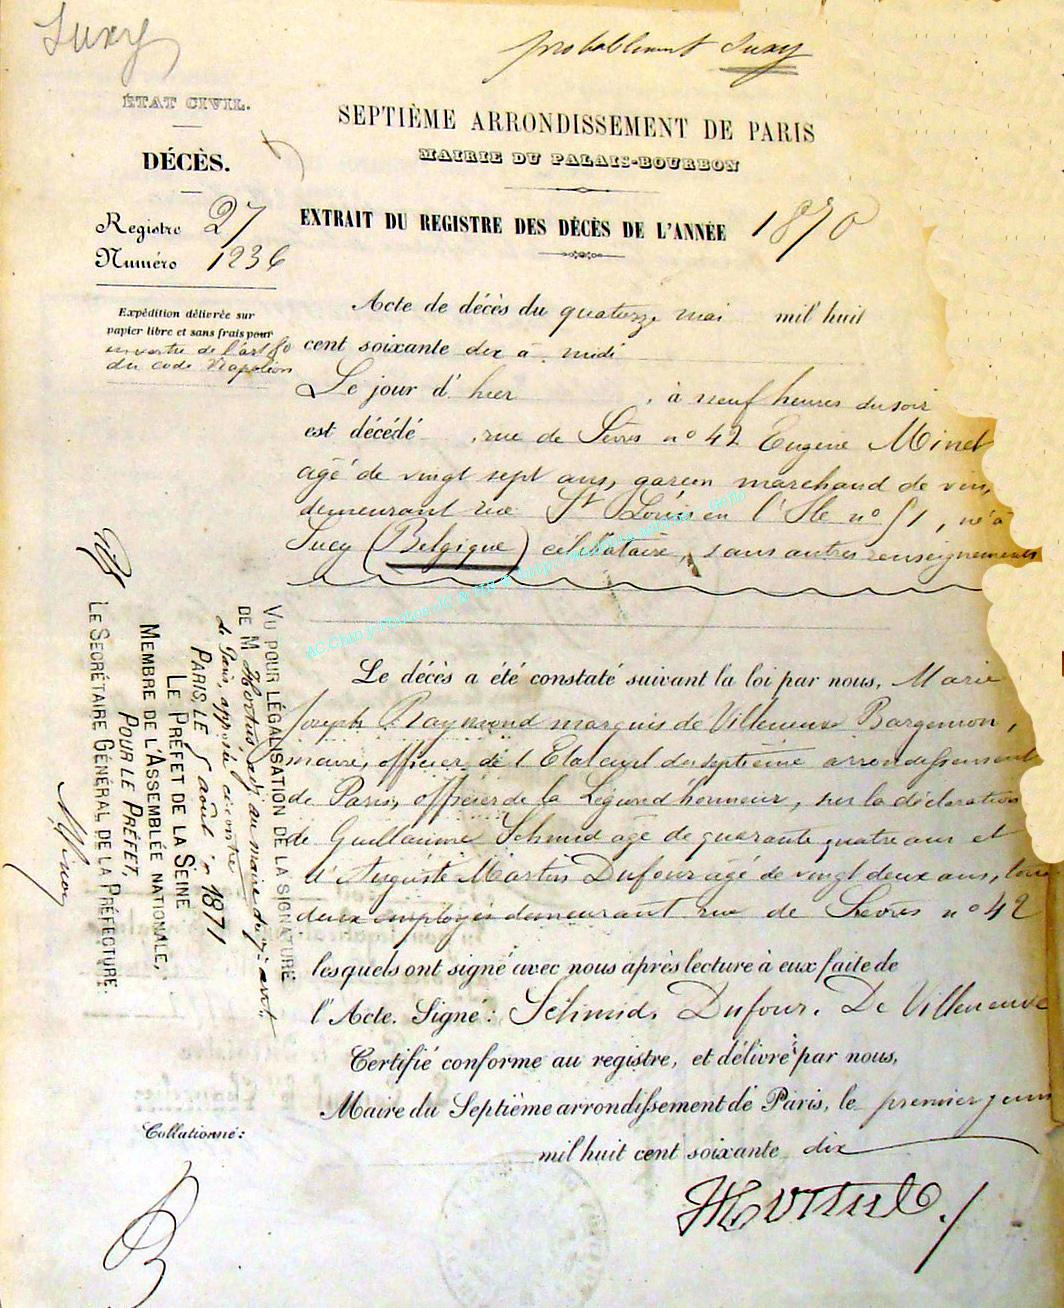 Suxy
probablement Suxy
ÉTAT CIVIL.
DÉCÈS.
Registre 27
Numéro 1236
Expédition délivrée sur
papier libre et sans frais pour
en vertu de l'art 80
du code Napoléon
SEPTIÈME ARRONDISSEMENT DE PARIS
MAIRIE DU PALAIS-BOURBON
EXTRAIT DU REGISTRE DES DÉCÈS DE L'ANNÉE 1870
Acte de décès du quatorze mai mil huit
cent soixante dix à midi
Le jour d'hier, à neuf heures du soir
est décédé, rue de Sèvres n° 42 Eugène Minet
agé de vingt sept ans, garçon marchand de vin,
demeurant rue St Louis en l'Ile n° 51, né à
Sucy (Belgique) célibataire, sans autres renseignements
Le décès a été constaté suivant la loi par nous, Marie
Joseph Raymond marquis de Villeneuve Bargemon,
maire, officier de l'Etat civil du septième arrondissement
de Paris, officier de la Légion d'honneur, sur la déclaration
de Guillaume Schmid agé de quarante quatre ans et
d'Auguste Martin Dufour agé de vingt deux ans, tous
deux employés demeurant rue de Sèvres n° 42
lesquels ont signé avec nous après lecture à eux faite de
l'Acte. Signé: Schmid, Dufour, De Villeneuve
Certifié conforme au registre, et délivré par nous,
Maire du Septième arrondissement de Paris, le premier juin
mil huit cent soixante dix
Collationné:
VU POUR LÉGALISATION DE LA SIGNATURE
DE M Hortus, adj. au maire du 7e arrt.
de Paris, apposée ci contre
PARIS, LE 5 août 1871
LE PRÉFET DE LA SEINE
MEMBRE DE L'ASSEMBLÉE NATIONALE,
POUR LE PRÉFET,
LE SECRÉTAIRE GÉNÉRAL DE LA PRÉFECTURE.